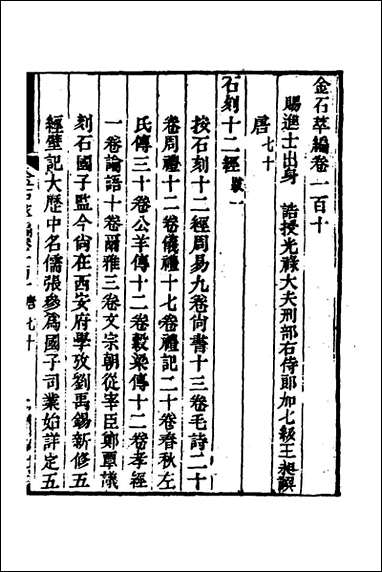 金石萃編卷一百十
賜進士出身　誥授光祿大夫刑部右侍郎加七級王昶譔
唐七十
石刻十二經跋一
按石刻十二經周易九卷尚書十三卷毛詩二十
卷周禮十二卷儀禮十七卷禮記二十卷春秋左
氏傳三十卷公羊傳十二卷穀梁傳十二卷孝經
一卷論語十卷爾雅三卷文宗朝從宰臣鄭覃議
刻石國子監今尚在西安府學攷劉禹錫新修五
經壁記大歷中名儒張參為國子司業始詳定五